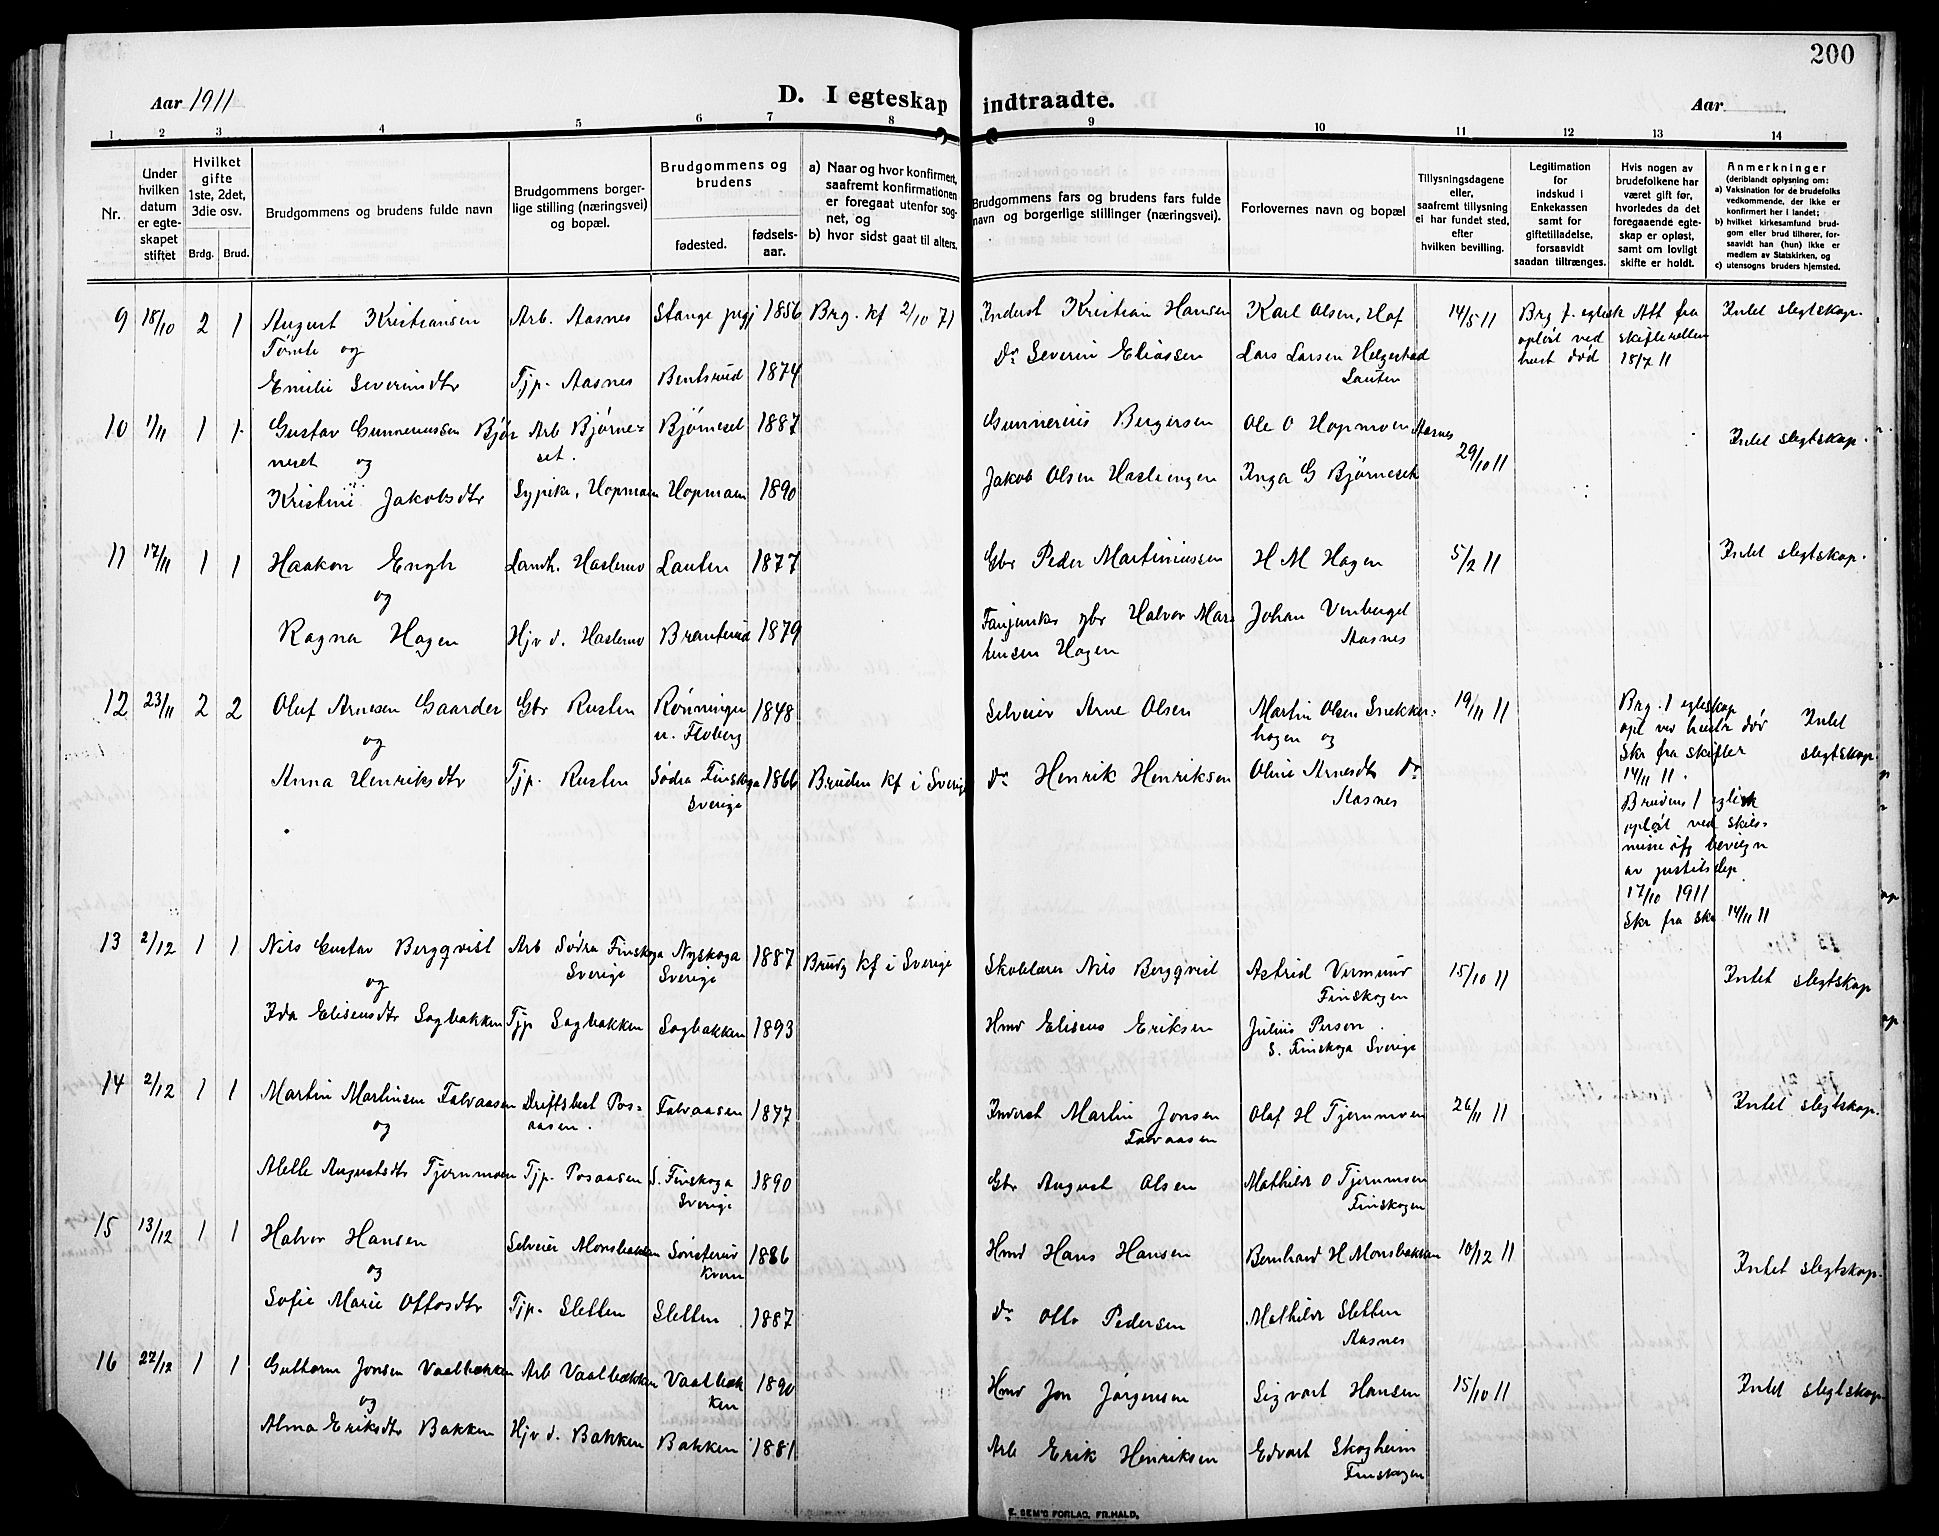 200
Aar 1911
D. I egteskap indtraadte.
Aar
1 2 3 4 5 6 7 8 9 10 11 12 13 14
Nr.
Under hvilken datum er egteskapet stiftet
Hvilket gifte 1ste, 2det, 3die osv.
Brdg. Brud.
Brudgommens og brudens fulde navn
Brudgommens borgerlige stilling (næringsvei) og bopæl.
Brudgommens og brudens
fødested.
fødselsaar.
a) Naar og hvor konfirmert, saafremt konfirmationen er foregaat utenfor sognet, og
b) hvor sidst gaat til alters.
Brudgommens fars og brudens fars fulde navn og borgerlige stillinger (næringsvei).
Forlovernes navn og bopæl
Tillysningsdagene eller, saafremt tillysning ei har fundet sted, efter hvilken bevilling.
Legitimation for indskud i Enkekassen samt for giftetilladelse, forsaavidt saadan tiltrænges.
Hvis nogen av brudefolkene har været gift før, hvorledes da det foregaaende egteskap er opløst, samt om lovligt skifte er holdt.
Anmerkninger (deriblandt oplysning om:
a) Vaksination for de brudefolks vedkommende, der ikke er konfirmert her i landet;
b) hvilket kirkesamfund brudgom eller brud tilhører, forsaavidt han (hun) ikke er medlem av Statskirken, og
c) utensogns bruders hjemsted.
9 18/10 2 1 August Kristiansen Arb. Aasnes Stange 1856 Brg. kf 2/10 71 Inderst Kristian Hansen Karl Olsen, Hof 14/5 11 Brg f. egtesk Att fra Intet slegtskap.
og opløst ved skifteretten
Emilie Severinsdtr Tjp. Aasnes Bentsrud 1874 Do Severin Eliassen Lars Larsen Helgestad hust død 18/7 11
Løuten
10 1/11 1 1 Gustav Gunneriussen Bjør Arb Bjørne= Bjørneset 1887 Gunnerius Bergersen Ole O Hopmoen Aasnes 29/10 11 Intet slegtskap.
neset og set.
Kristine Jakobsdtr Sypike, Hopmoen Hopmoen 1890 Jakob Olsen Inga G Bjørneset
11 17/11 1 1 Haakon Engh Landh. Haslemo Løuten 1877 Gbr Peder Martiniussen H M Hagen 5/2 11 Intet slegtskap.
og
Ragna Hagen Hjv d. Haslemo 1879 gbr Halvor Mar Johan Venberget
tinsen Hagen Aasnes
12 23/11 2 2 Oluf Arnesen Gaarder Gbr Rusten Rønningen 1848 Selveier Arne Olsen Martin Olsen Snekker= 19/11 11 Brg. 1 egteskap Intet
og u. Floberg hagen og opl ved hustr død slegtskap.
Anna Henriksdtr Tjp. Rusten Södra Finskoga 1866 Bruden kf i Sverige do Henrik Henriksen Oline Arnesdtr do Skr fra skifter
Sverige Aasnes 14/11 11.
Brudens 1 egtesk
opløst ved skils=
misse bevilgn
av justitsdep
17/10 1911
Skr fra skr 14/11 11
13 2/12 1 1 Nils Gustav Bergqvist Arb Södra Finskoga Nyskoga 1887 Brudg kf i Sverige Skolelærer Nils Bergqvist Astrid Vermund 15/10 11 Intet slegtskap
og Sverige Sverige Finskogen
Ida Elisensdtr Sagbakken Tjp Sagbakken Sagbakken 1893 Hmd Eliseus Eriksen Julius Person
S. Finskoga Sverige
14 2/12 1 1 Martin Martinsen Falvaasen Driftsbest Pos= Falvaasen 1877 Inderst Martin Jonsen Olaf H Tjernmoen 26/11 11 Intet slegtskap.
og aasen. Falvaasen
Alette Augustsdtr Tjernmoen Tjp. Posaasen S. Finskoga 1890 Gbr August Olsen Mathilde O Tjernmoen
Sverige Finskogen
15 13/12 1 1 Halvor Hansen Selveier Monsbakken Sønsterud 1886 Hmd Hans Hansen Bernhard H Monsbakken 10/12 11 Intet slegtskap.
og Kvern
Sofie Marie Ottosdtr Tjp. Sletten Sletten 1887 Do Otto Pedersen Mathilde Sletten
Aasnes
16 27/12 1 1 Guttorm Jonsen Vaalbækken Arb Vaalbækken Vaalbæk 1890 Hmd Jon Jørgensen Sigvart Hansen 15/10 11 Intet slegtskap
og ken
Alma Eriksdtr Bakken Hjv d. Bakken Bakken 1881 Arb Erik Henriksen Edvart Skogheim
Finskogen
E. SEM'S FORLAG, FR.HALD,